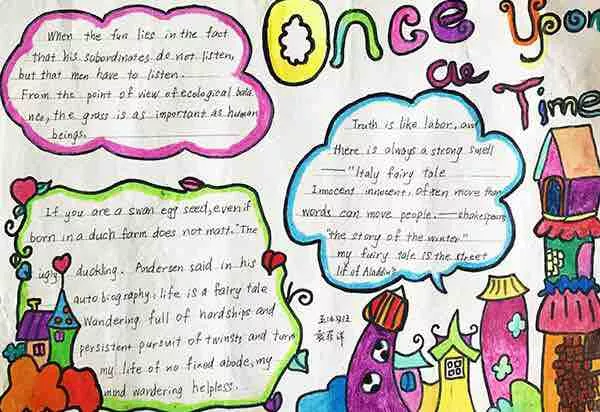 Once Upon
a Time
When the fun lies in the fact
that his subordinates do not listen,
but that men have to listen.
From the point of view of ecological bala
nce, the grass is as important as human
beings.
Truth is like labor, an
there is always a strong smell
—"Italy fairy tale
Innocent innocent, often more than
words can move people.——shakespeare
"the story of the winter"
my fairy tale is the street
lit of Aladdin"
If you are a swan egg seed, even if
born in a duch farm does not matt. "The
ugly duckling. Andersen said in his
autobiography: life is a fairy tale
Wandering full of hardships and
persistent pursuit of twinsts and turn
my life of no fixed abode, my
mind wandering helpless.